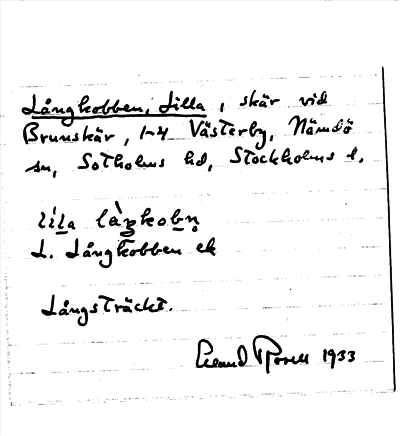 Långkobben, Lilla, skär vid
Brunskär, 1-4 Västerby, Nämdö
sn, Sotholms hd, Stockholms l.
lila làŋkobn̥
L. Långkobben ek
Långsträckt.
1933